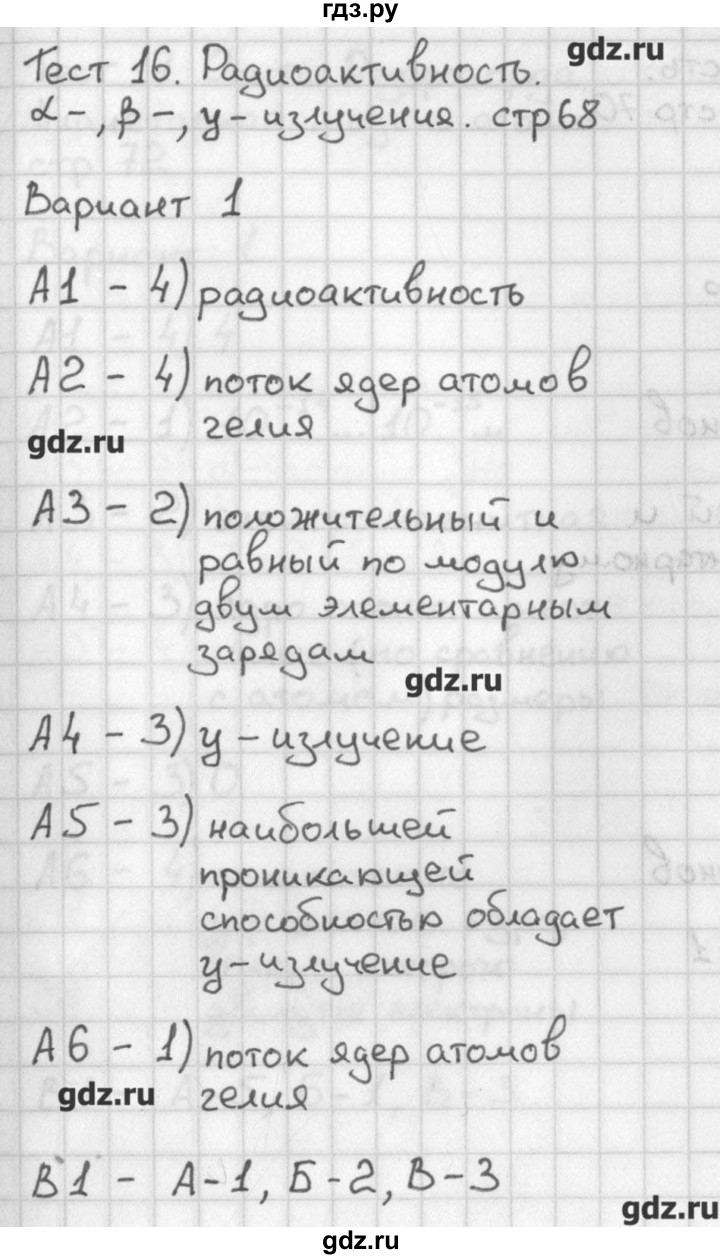 гдз.ру
gdz.ru
Тест 16. Радиоактивность.
α-, β-, γ-излучения. стр68
Вариант 1
А1 - 4) радиоактивность
А2 - 4) поток ядер атомов
гелия
gdz.ru
А3 - 2) положительный и
равный по модулю
двум элементарным
зарядам
gdz.ru
А4 - 3) γ-излучение
А5 - 3) наибольшей
проникающей
способностью обладает
γ-излучение
А6 - 1) поток ядер атомов
gdz.ru
гелия
В1 - А-1, Б-2, В-3
gdz.ru
гдз.ру